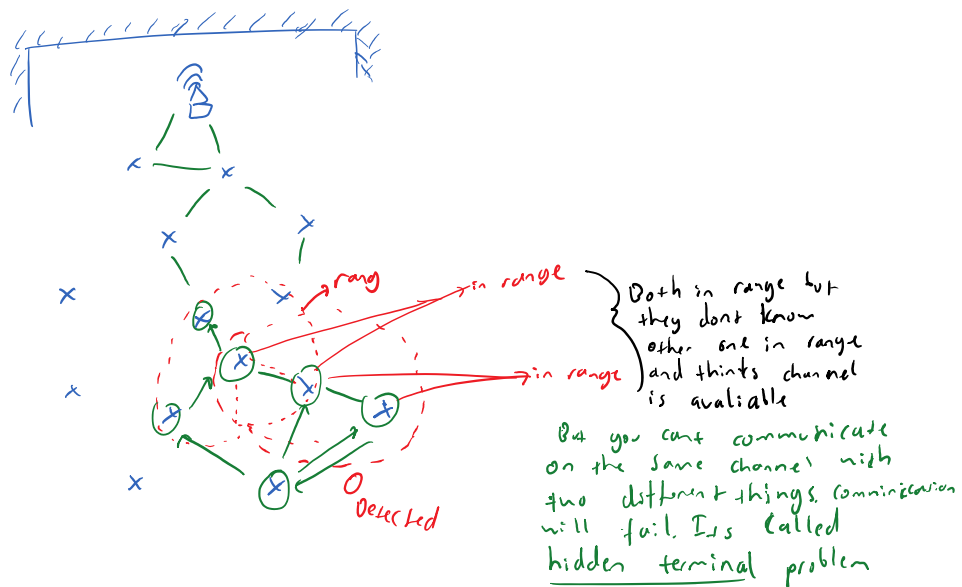 rang
in range
in range
Both in range but
they dont know
other one in range
and thinks channel
is avaliable
But you cant communicate
on the same channel with
two different things. comminication
will fail. Its called
hidden terminal problem
Detected